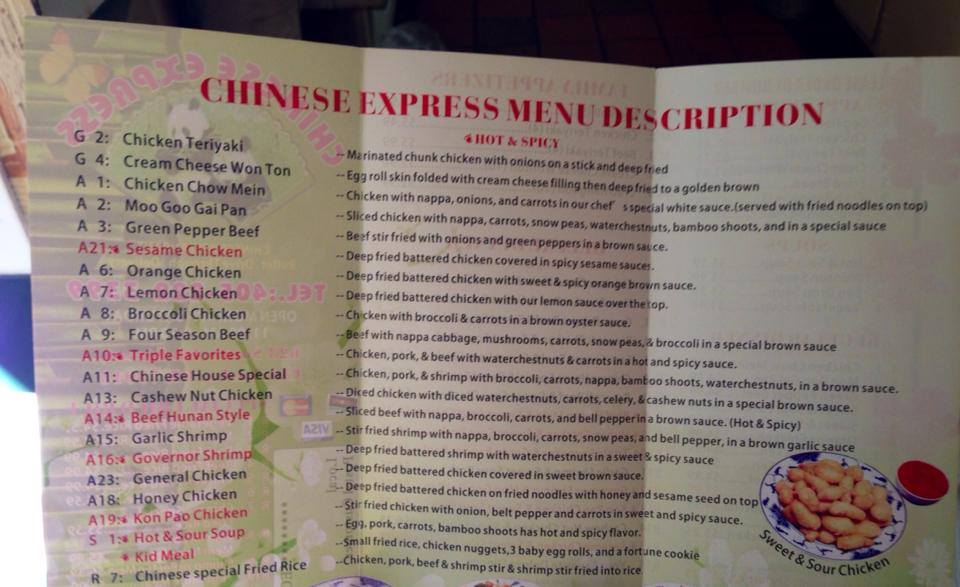 CHINESE EXPRESS MENU DESCRIPTION
HOT & SPICY
G 2: Chicken Teriyaki -- Marinated chunk chicken with onions on a stick and deep fried
G 4: Cream Cheese Won Ton -- Egg roll skin folded with cream cheese filling then deep fried to a golden brown
A 1: Chicken Chow Mein -- Chicken with nappa, onions, and carrots in our chef' s special white sauce.(served with fried noodles on top)
A 2: Moo Goo Gai Pan -- Sliced chicken with nappa, carrots, snow peas, waterchestnuts, bamboo shoots, and in a special sauce
A 3: Green Pepper Beef -- Beef stir fried with onions and green peppers in a brown sauce.
A21: Sesame Chicken -- Deep fried battered chicken covered in spicy sesame sauces.
A 6: Orange Chicken -- Deep fried battered chicken with sweet & spicy orange brown sauce.
A 7: Lemon Chicken -- Deep fried battered chicken with our lemon sauce over the top.
A 8: Broccoli Chicken -- Chicken with broccoli & carrots in a brown oyster sauce.
A 9: Four Season Beef -- Beef with nappa cabbage, mushrooms, carrots, snow peas, & broccoli in a special brown sauce
A10: Triple Favorites -- Chicken, pork, & beef with waterchestnuts & carrots in a hot and spicy sauce.
A11: Chinese House Special -- Chicken, pork, & shrimp with broccoli, carrots, nappa, bamboo shoots, waterchestnuts, in a brown sauce.
A13: Cashew Nut Chicken -- Diced chicken with diced waterchestnuts, carrots, celery, & cashew nuts in a special brown sauce.
A14: Beef Hunan Style -- Sliced beef with nappa, broccoli, carrots, and bell pepper in a brown sauce. (Hot & Spicy)
A15: Garlic Shrimp -- Stir fried shrimp with nappa, broccoli, carrots, snow peas, and bell pepper, in a brown garlic sauce
A16: Governor Shrimp -- Deep fried battered shrimp with waterchestnuts in a sweet & spicy sauce
A23: General Chicken -- Deep fried battered chicken covered in sweet brown sauce.
A18: Honey Chicken -- Deep fried battered chicken on fried noodles with honey and sesame seed on top
A19: Kon Pao Chicken -- Stir fried chicken with onion, belt pepper and carrots in sweet and spicy sauce.
S 1: Hot & Sour Soup -- Egg, pork, carrots, bamboo shoots has hot and spicy flavor.
Kid Meal --Small fried rice, chicken nuggets,3 baby egg rolls, and a fortune cookie
R 7: Chinese special Fried Rice --Chicken, pork, beef & shrimp stir & shrimp stir fried into rice
Sweet & Sour Chicken